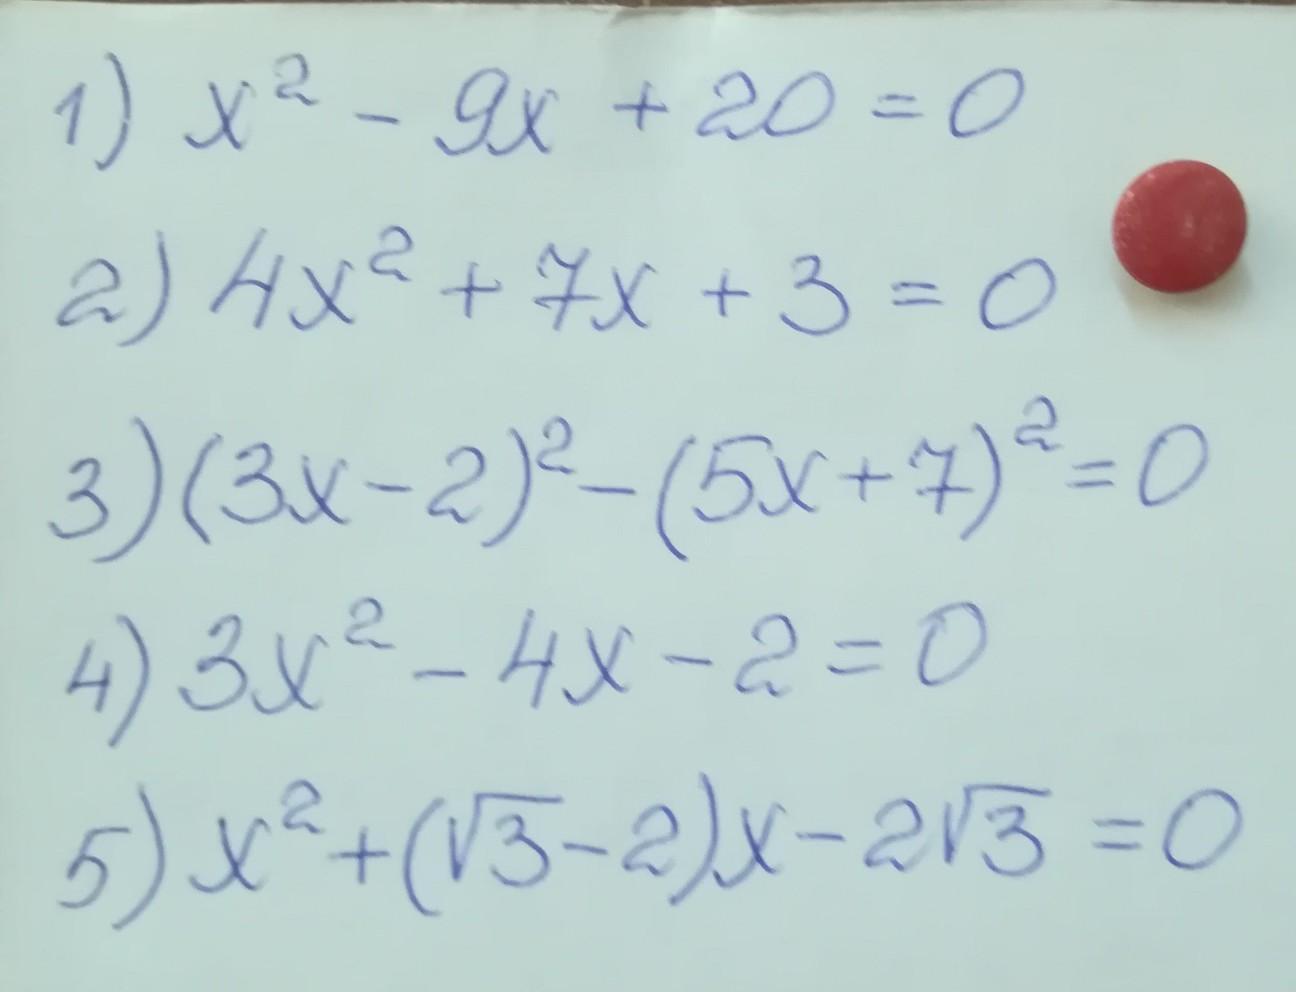 1) x² - 9x + 20 = 0
2) 4x² + 7x + 3 = 0
3) (3x - 2)² - (5x + 7)² = 0
4) 3x² - 4x - 2 = 0
5) x² + (√3 - 2)x - 2√3 = 0